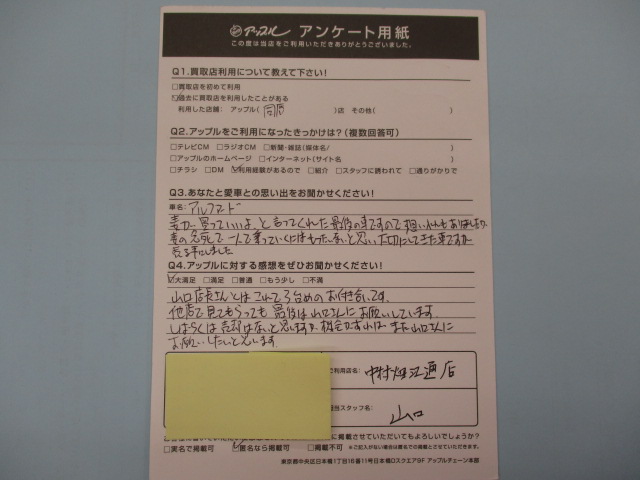 アップル アンケート用紙
この度は当店をご利用いただきありがとうございました。
Q1.買取店利用について教えて下さい!
□買取店を初めて利用
☑過去に買取店を利用したことがある
利用した店舗: アップル(同店)店 その他( )
Q2.アップルをご利用になったきっかけは?(複数回答可)
□テレビCM □ラジオCM □新聞・雑誌(媒体名/ )
□アップルのホームページ □インターネット(サイト名 )
□チラシ □DM ☑利用経験があるので □紹介 □スタッフに誘われて □通りがかりで
Q3.あなたと愛車との思い出をお聞かせください!
車名: アルファード
妻が買っていいよ、と言ってくれた最後の車ですので思い入れもありましたが、
妻の急死で一人で乗っていくにはもったいないと思い、大切にしてきた車ですが
売る事にしました
Q4.アップルに対する感想をぜひお聞かせください!
☑大満足 □満足 □普通 □もう少し □不満
山口店長さんとはこれで3台めのお付き合いです。
他店で見てもらっても最後は山口さんにお願いしています。
しばらくは売却はないと思いますが、機会があればまた山口さんに
お願いしたいと思います。
ご利用店名: 中村畑江通店
担当スタッフ名:
山口
に掲載させていただいてもよろしいでしょうか?
□実名で掲載可 ☑匿名なら掲載可 □掲載不可 ※ご記入がない場合は匿名での掲載とさせていただきます。
東京都中央区日本橋1丁目16番11号日本橋Dスクエア9F アップルチェーン本部